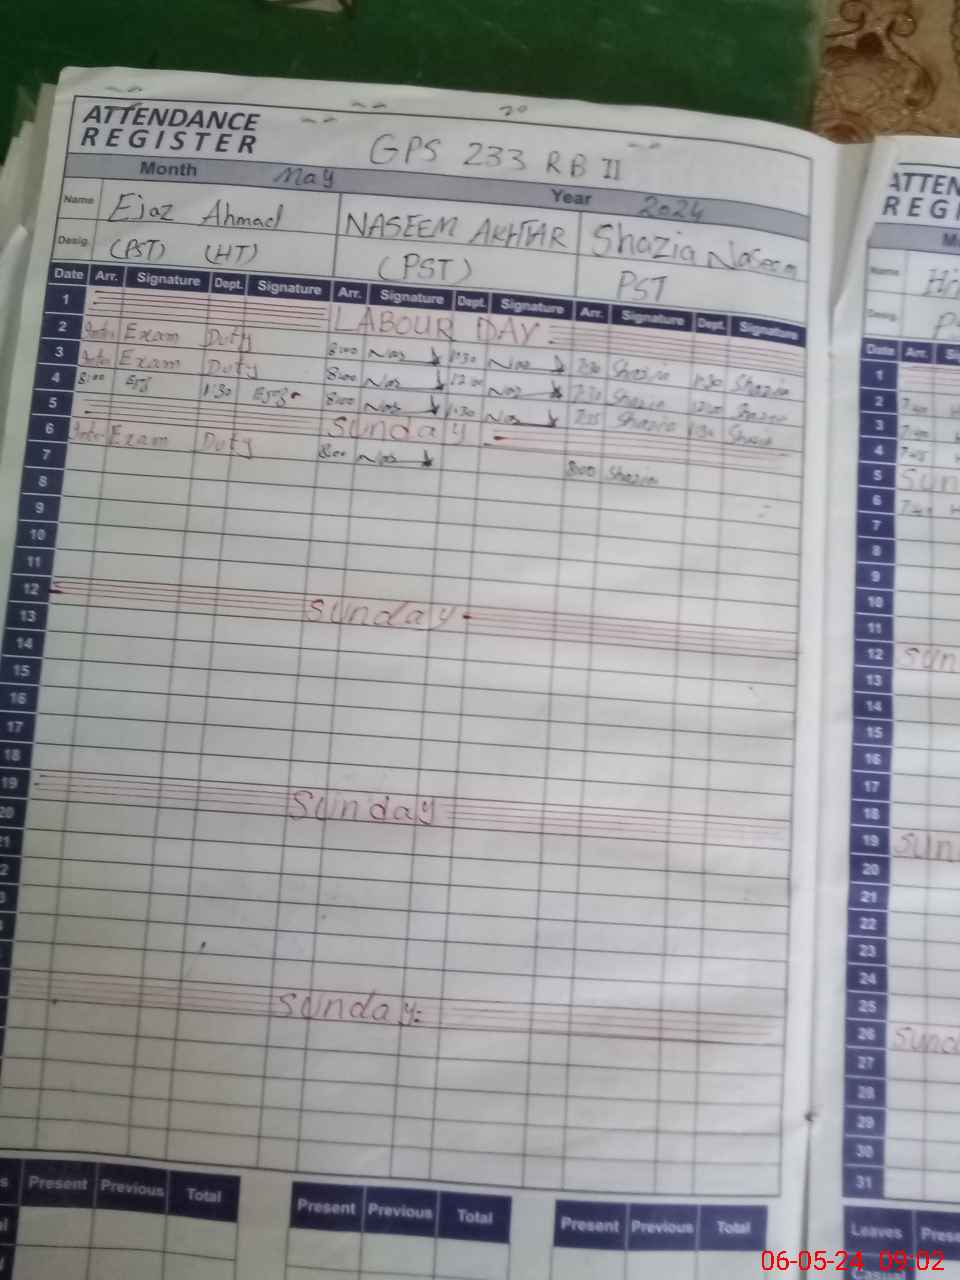 ATTENDANCE
REGISTER
GPS 233 RB II
Month May Year 2024
Name Ejaz Ahmad NASEEM AKHTAR Shazia Naseem
Desig. (PST) (HT) (PST) PST
Date Arr. Signature Dept. Signature Arr. Signature Dept. Signature Arr. Signature Dept. Signature
1 LABOUR DAY
2 Exam Duty 8:00 Nas 1:30 Nas 7:30 Shazia 1:30 Shazia
3 Exam Duty 8:00 Nas 12:00 Nas 7:30 Shazia 12:00 Shazia
4 8:00 Ejz 1:30 8:00 Nas 1:30 Nas 7:35 Shazia 1:30 Shazia
5 Sunday
6 Exam Duty 8:00 Nas 8:00 Shazia
7
8
9
10
11
12 Sunday
13
14
15
16
17
18
19 Sunday
20
Sunday
Present Previous Total Present Previous Total Present Previous Total
ATTEN
REGI
Name
Desig.
Date Arr.
1
2
3
4
5 Sun
6
7
8
9
10
11
12 Sun
13
14
15
16
17
18
19 Sun
20
21
22
23
24
25
26 Sund
27
28
29
30
31
Leaves Prese
06-05-24 09:02